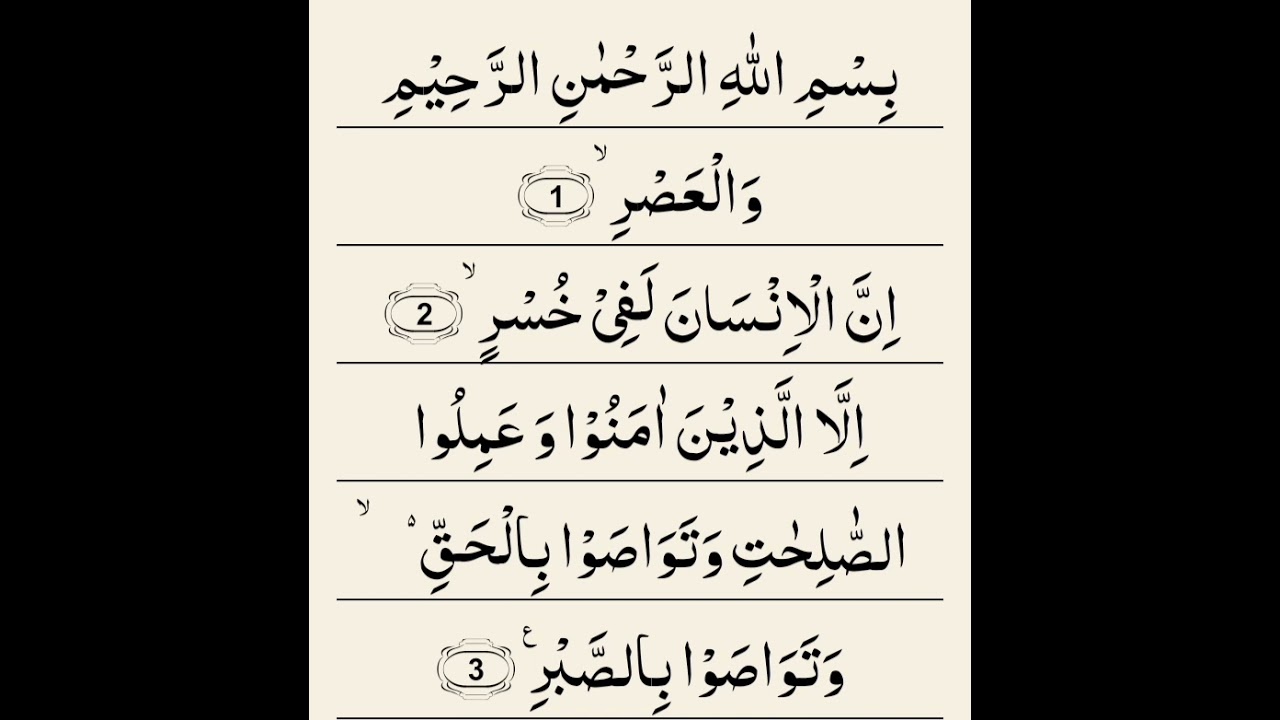 بِسْمِ اللّٰهِ الرَّحْمٰنِ الرَّحِيْمِ
وَالْعَصْرِ ۙ 1
اِنَّ الْاِنْسَانَ لَفِيْ خُسْرٍ ۙ 2
اِلَّا الَّذِيْنَ اٰمَنُوْا وَ عَمِلُوا
الصّٰلِحٰتِ وَتَوَاصَوْا بِالْحَقِّ ۵ ۙ
وَتَوَاصَوْا بِالصَّبْرِ ع 3